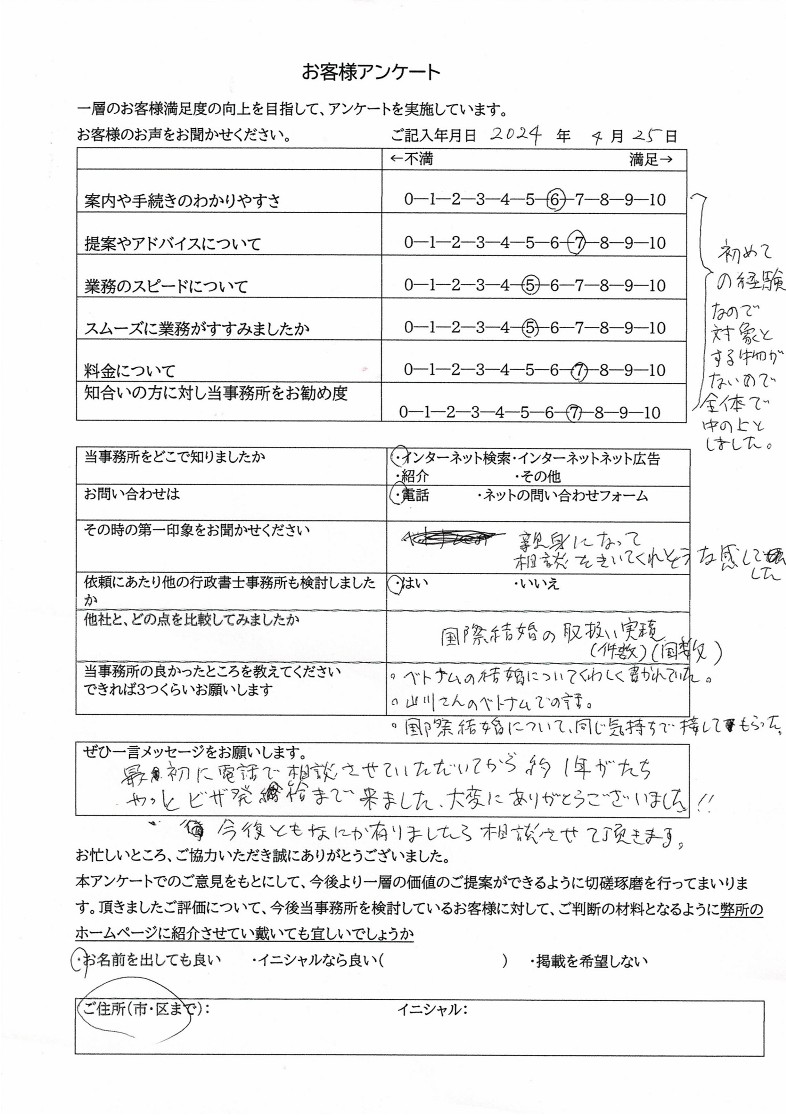 お客様アンケート
一層のお客様満足度の向上を目指して、アンケートを実施しています。
お客様のお声をお聞かせください。 ご記入年月日 2024 年 4 月 25 日
←不満 満足→
案内や手続きのわかりやすさ 0―1―2―3―4―5―6―7―8―9―10
提案やアドバイスについて 0―1―2―3―4―5―6―7―8―9―10
業務のスピードについて 0―1―2―3―4―5―6―7―8―9―10
スムーズに業務がすすみましたか 0―1―2―3―4―5―6―7―8―9―10
料金について 0―1―2―3―4―5―6―7―8―9―10
知合いの方に対し当事務所をお勧め度
0―1―2―3―4―5―6―7―8―9―10
初めて
の経験
なので
対象と
する物が
ないので
全体で
中の上と
しました。
当事務所をどこで知りましたか ・インターネット検索・インターネットネット広告
・紹介 ・その他
お問い合わせは ・電話 ・ネットの問い合わせフォーム
その時の第一印象をお聞かせください 親身になって
相談をきいてくれそうな感じ
した
依頼にあたり他の行政書士事務所も検討しました ・はい ・いいえ
か
他社と、どの点を比較してみましたか
国際結婚の取扱い実積
(件数)(国数)
当事務所の良かったところを教えてください
できれば3つくらいお願いします
。ベトナムの結婚についてくわしく書かれていた。
。山川さんのベトナムでの話。
。国際結婚について、同じ気持ちで接してもらった。
ぜひ一言メッセージをお願いします。
最初に電話で相談させていただいてから約1年がたち
やっとビザ発給まで来ました、大変にありがとうございました!!
今後ともなにか有りましたら相談させて頂きます。
お忙しいところ、ご協力いただき誠にありがとうございました。
本アンケートでのご意見をもとにして、今後より一層の価値のご提案ができるように切磋琢磨を行ってまいりま
す。頂きましたご評価について、今後当事務所を検討しているお客様に対して、ご判断の材料となるように弊所の
ホームページに紹介させてい戴いても宜しいでしょうか
・お名前を出しても良い ・イニシャルなら良い( ) ・掲載を希望しない
ご住所(市・区まで): イニシャル: